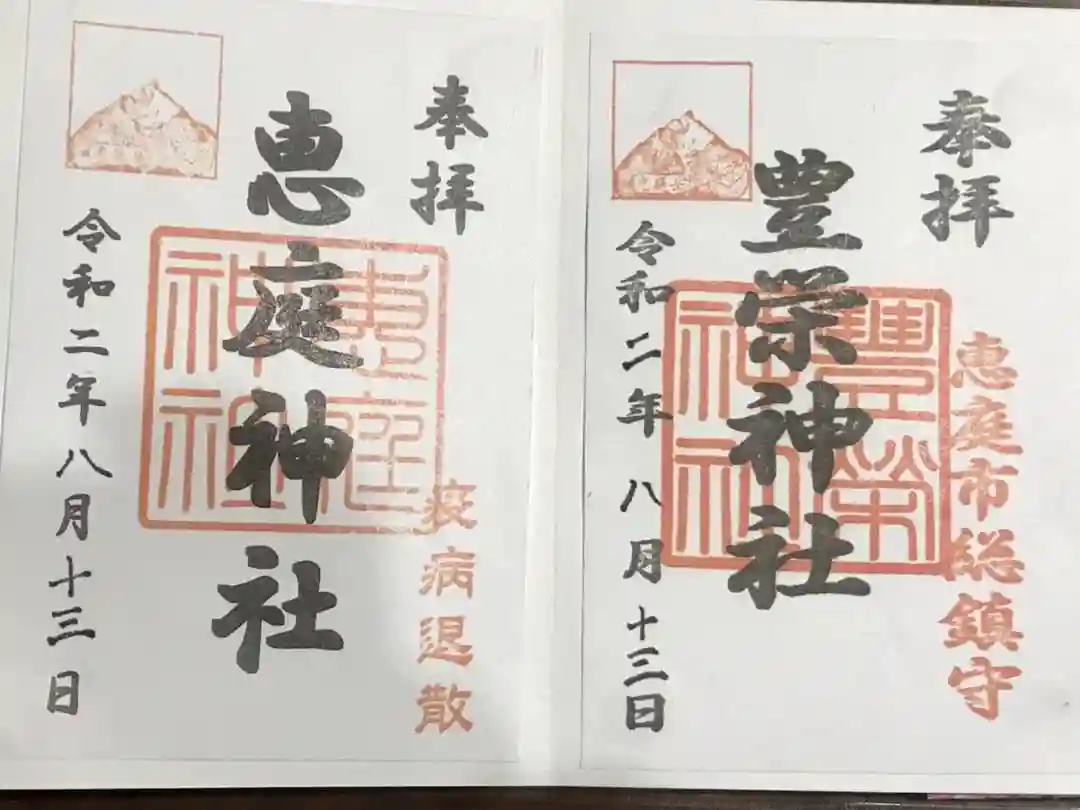 奉拝
恵市総鎮守
豊栄神社
豊榮
神社
令和二年八月十三日
奉拝
疫病退散
恵庭神社
恵庭
神社
令和二年八月十三日